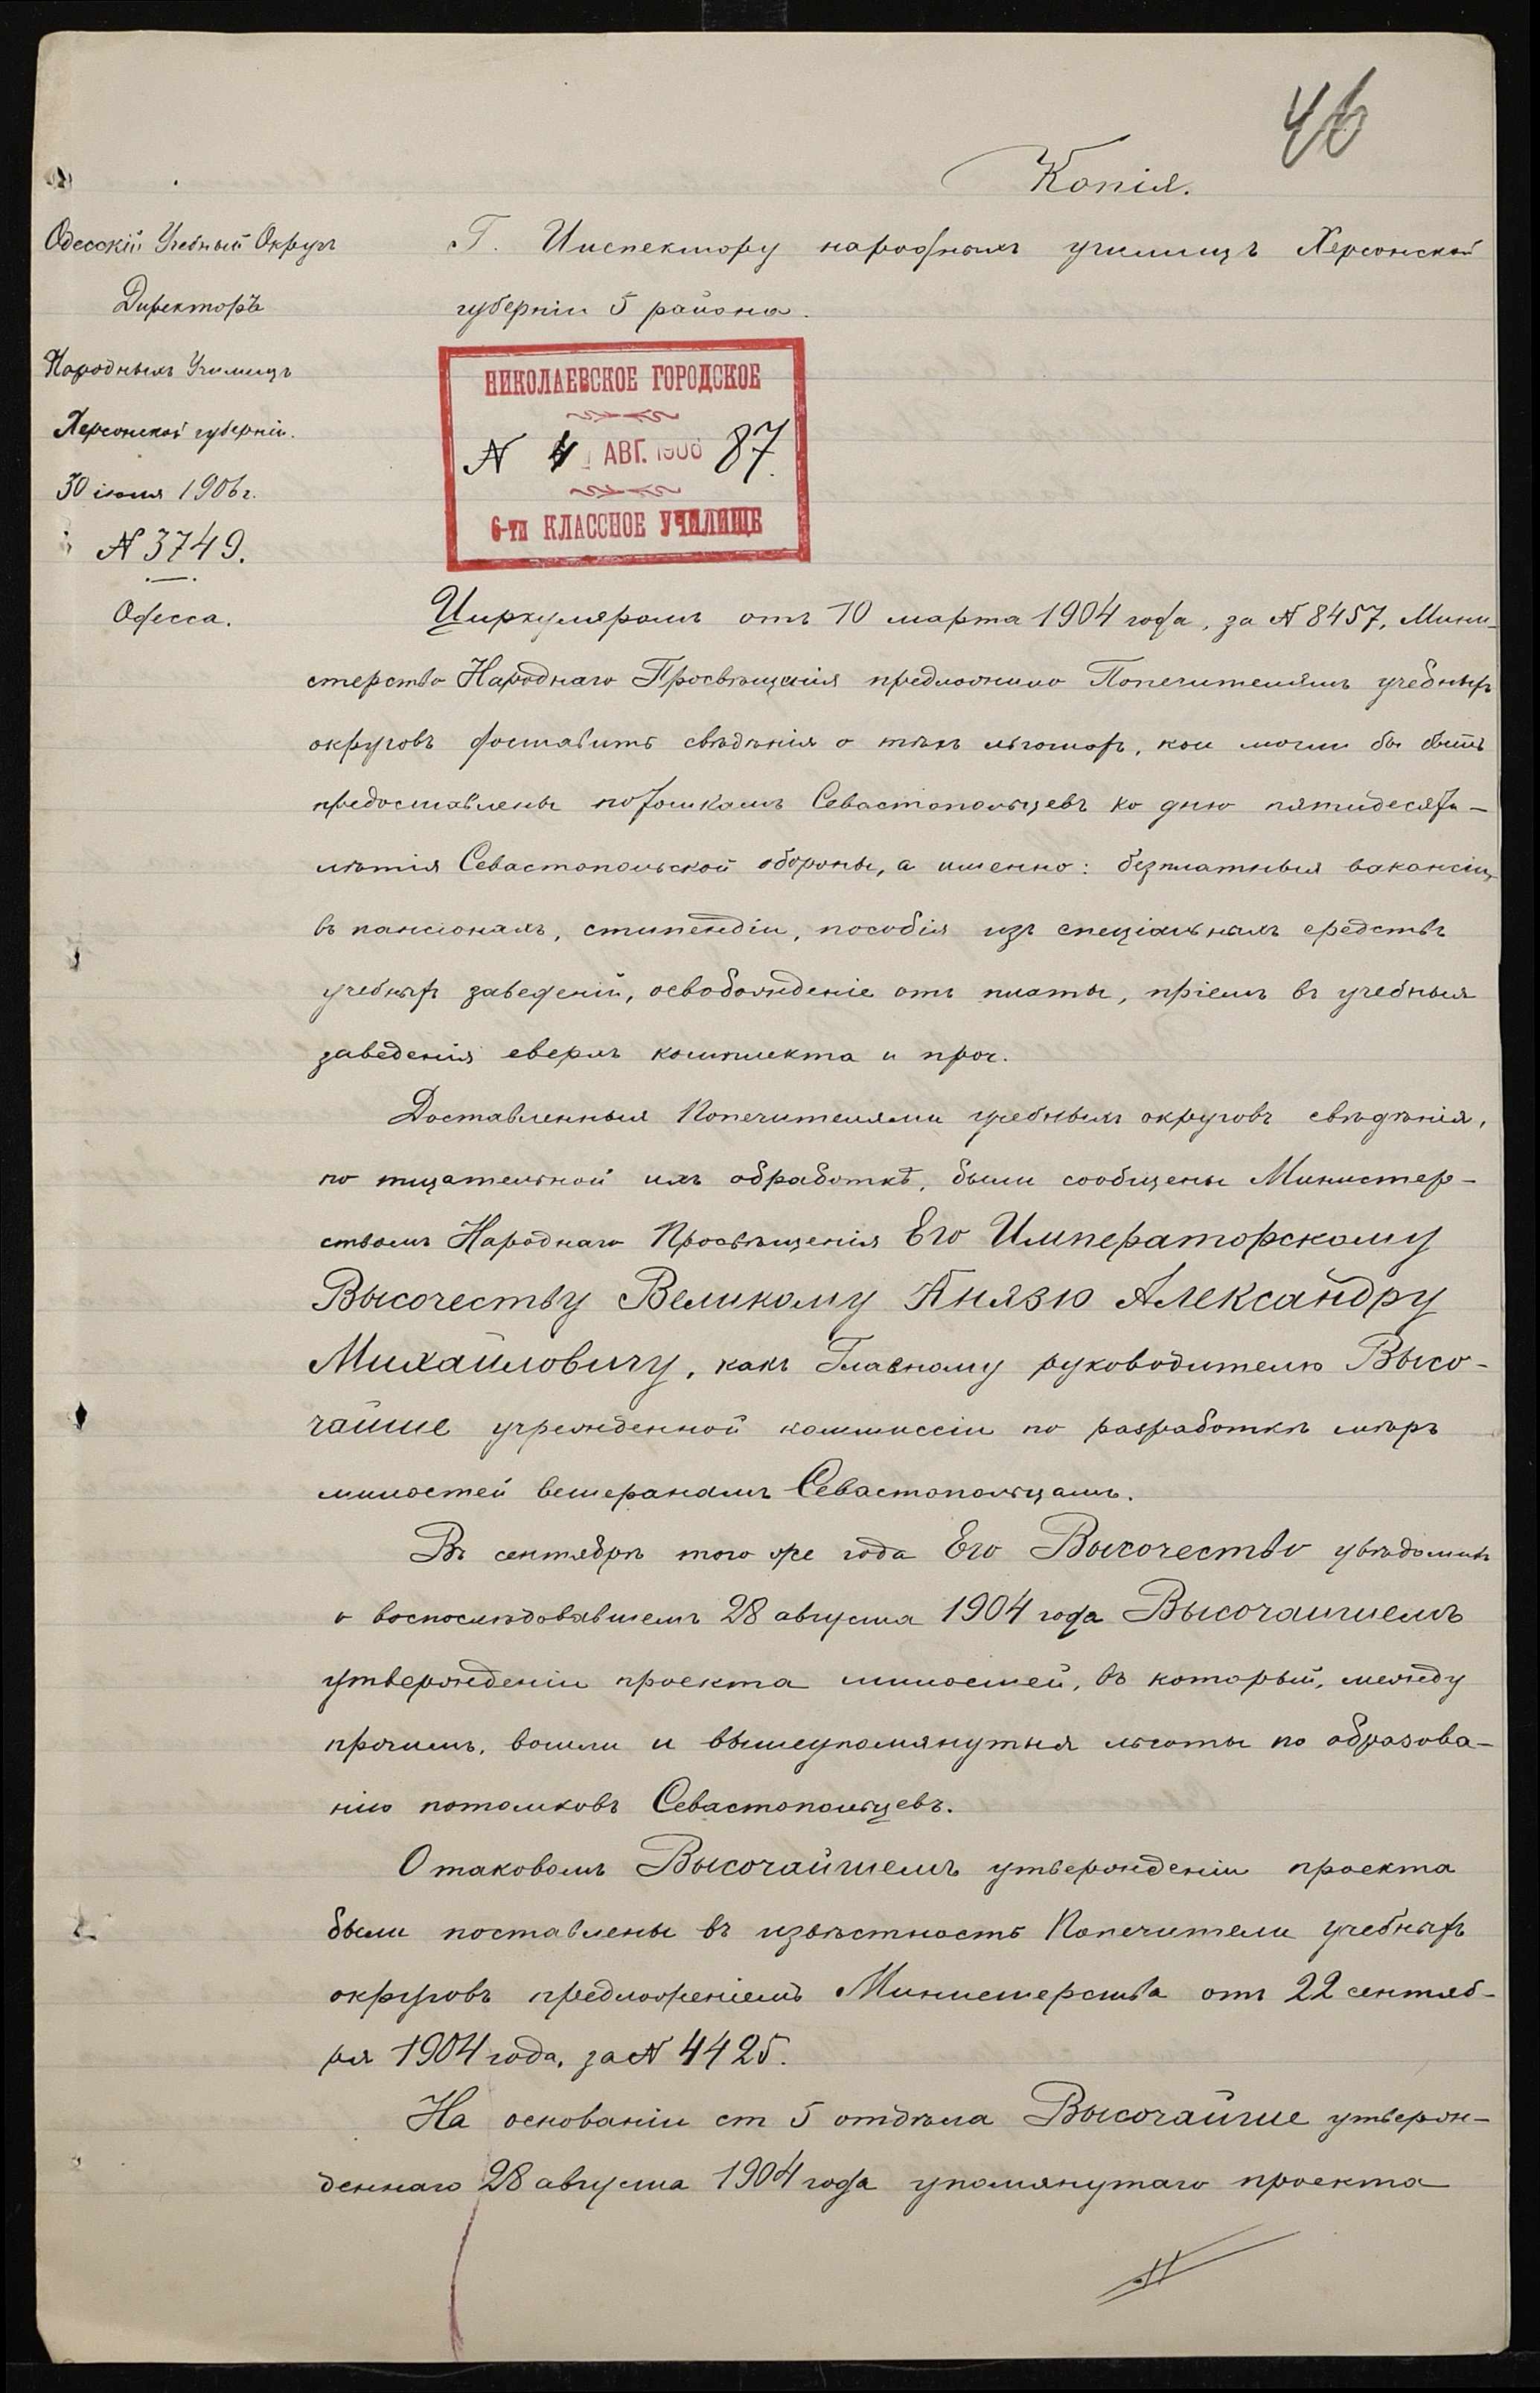 46
Копія.
Одесскій Учебный Округъ
Директоръ
Народныхъ Училищъ
Херсонской губерніи.
30 іюля 1906 г.
№ 3749.
Одесса.
Г. Инспектору народныхъ училищъ Херсонской
губерніи 5 района.
НИКОЛАЕВСКОЕ ГОРОДСКОЕ
№ 4 АВГ. 1906 87
6-ти КЛАССНОЕ УЧИЛИЩЕ
Циркуляромъ отъ 10 марта 1904 года, за № 8457, Мини-
стерство Народнаго Просвѣщенія предложило Попечителямъ учебныхъ
округовъ доставить свѣдѣнія о тѣхъ льготахъ, кои могли бы быть
предоставлены потомкамъ Севастопольцевъ ко дню пятидесяти-
лѣтія Севастопольской обороны, а именно: безплатныя вакансіи
въ пансіонахъ, стипендіи, пособія изъ спеціальныхъ средствъ
учебныхъ заведеній, освобожденіе отъ платы, пріемъ въ учебныя
заведенія сверхъ комплекта и проч.
Доставленныя Попечителями учебныхъ округовъ свѣдѣнія,
по тщательной ихъ обработкѣ, были сообщены Министер-
ствомъ Народнаго Просвѣщенія Его Императорскому
Высочеству Великому Князю Александру
Михайловичу, какъ Главному руководителю Высо-
чайше учрежденной коммиссіи по разработкѣ мѣръ
милостей ветеранамъ Севастопольцамъ.
Въ сентябрѣ того же года Его Высочество увѣдомилъ
о воспослѣдовавшемъ 28 августа 1904 года Высочайшемъ
утвержденіи проекта милостей, въ который, между
прочимъ, вошли и вышеупомянутыя льготы по образова-
нію потомковъ Севастопольцевъ.
О таковомъ Высочайшемъ утвержденіи проекта
были поставлены въ извѣстность Попечители учебныхъ
округовъ предложеніемъ Министерства отъ 22 сентяб-
ря 1904 года, за № 4425.
На основаніи ст 5 отдѣла Высочайше утверж-
деннаго 28 августа 1904 года упомянутаго проекта